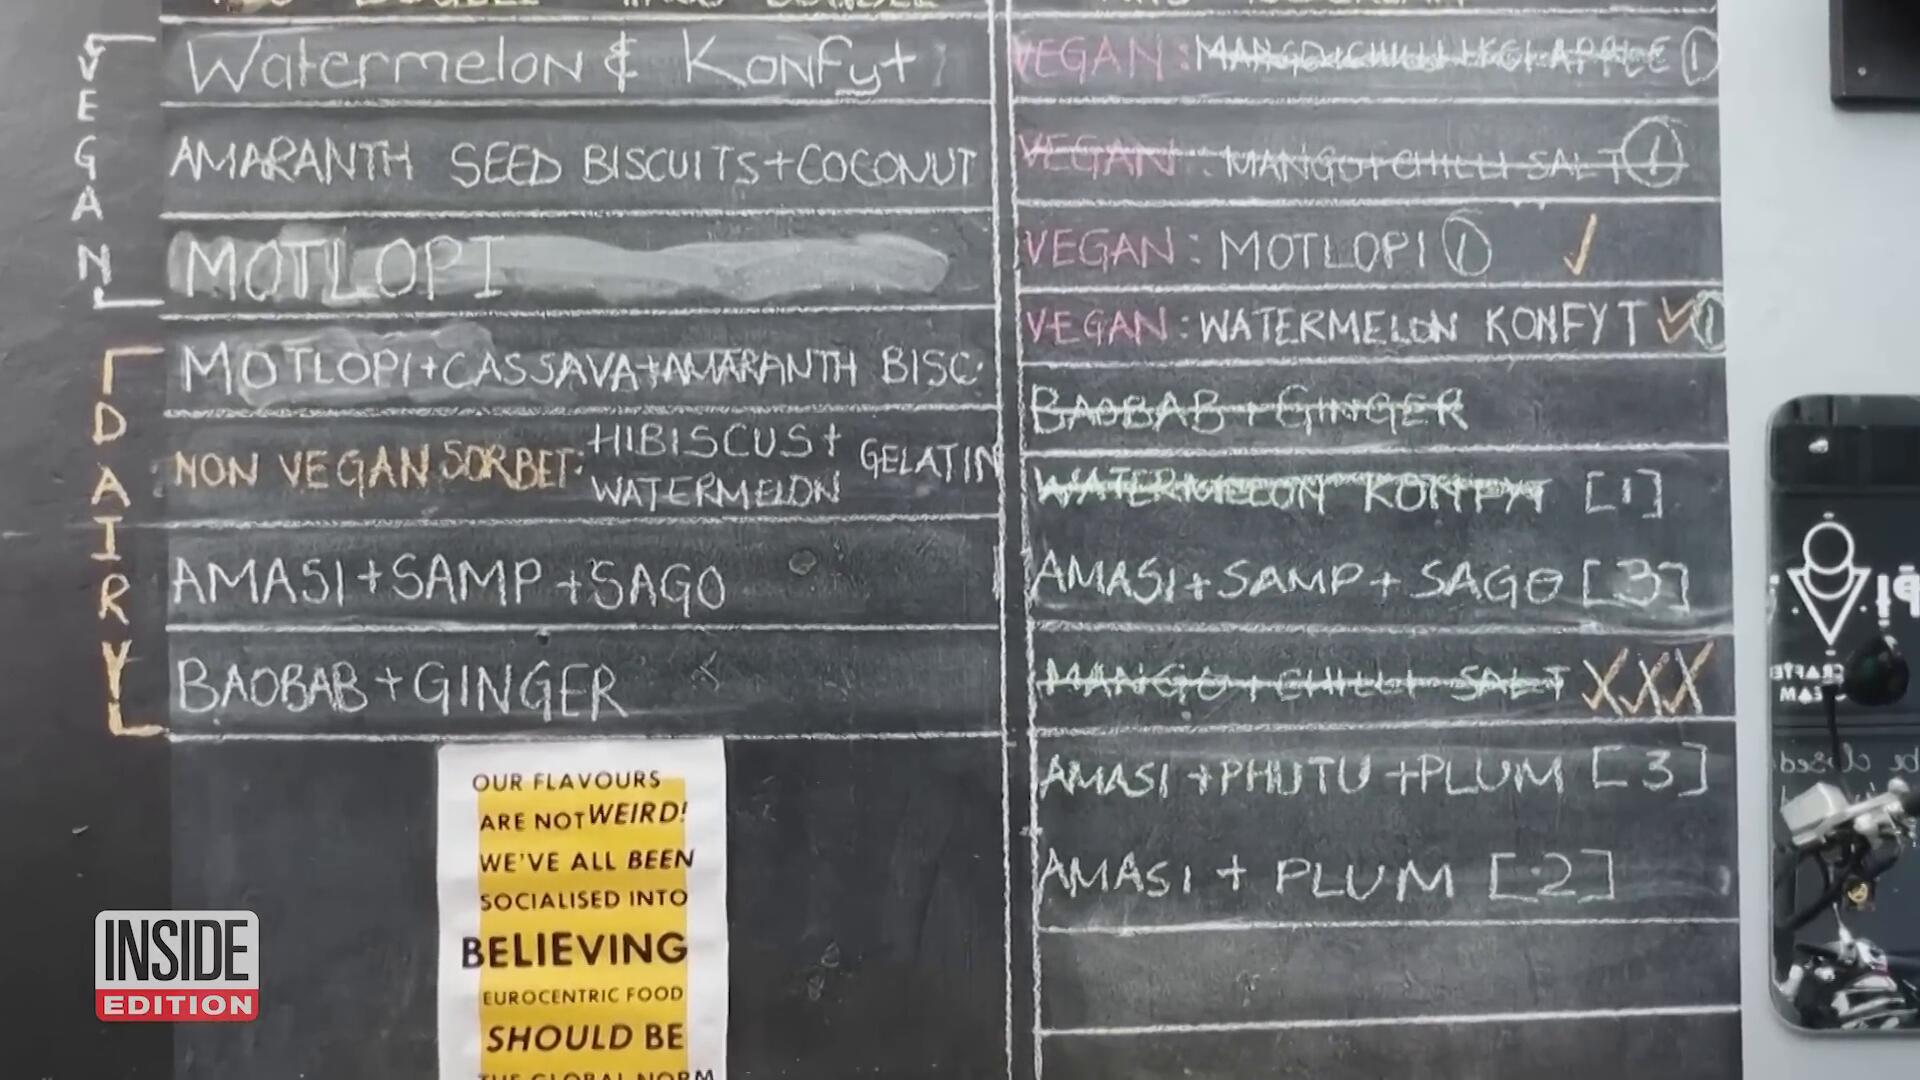 VEGAN
Watermelon & Konfyt
AMARANTH SEED BISCUITS+COCONUT
MOTLOPI
DAIRY
MOTLOPI+CASSAVA+AMARANTH BISC.
NON VEGAN SORBET: HIBISCUS+ WATERMELON GELATIN
AMASI+SAMP+SAGO
BAOBAB+GINGER
OUR FLAVOURS
ARE NOT WEIRD!
WE'VE ALL BEEN
SOCIALISED INTO
BELIEVING
EUROCENTRIC FOOD
SHOULD BE
THE GLOBAL NORM
VEGAN: MANGO+CHILLI+ APPLE 1
VEGAN: MANGO+CHILLI SALT 1
VEGAN: MOTLOPI 1
VEGAN: WATERMELON KONFYT 1
BAOBAB+GINGER
WATERMELON KONFYT [1]
AMASI+SAMP+SAGO [3]
MANGO+CHILLI SALT
AMASI+PHUTU+PLUM [3]
AMASI+PLUM [2]
INSIDE
EDITION